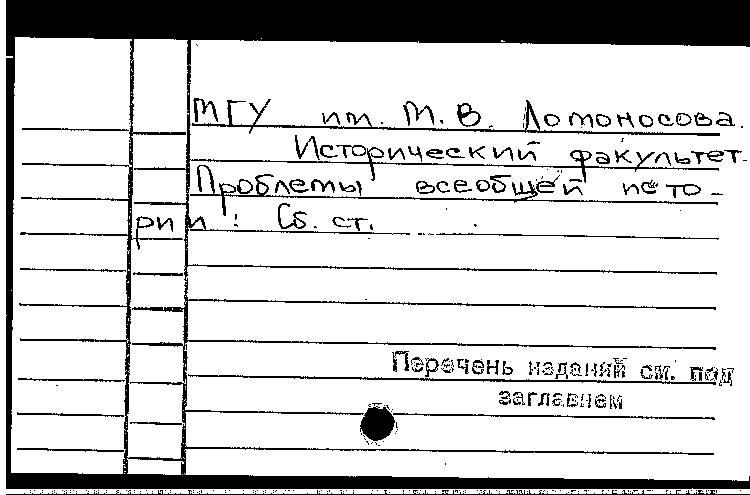 МГУ им. М.В. Ломоносова.
Исторический факультет.
Проблемы всеобщей исто-
рии : Сб. ст.
Перечень изданий см. под
заглавием